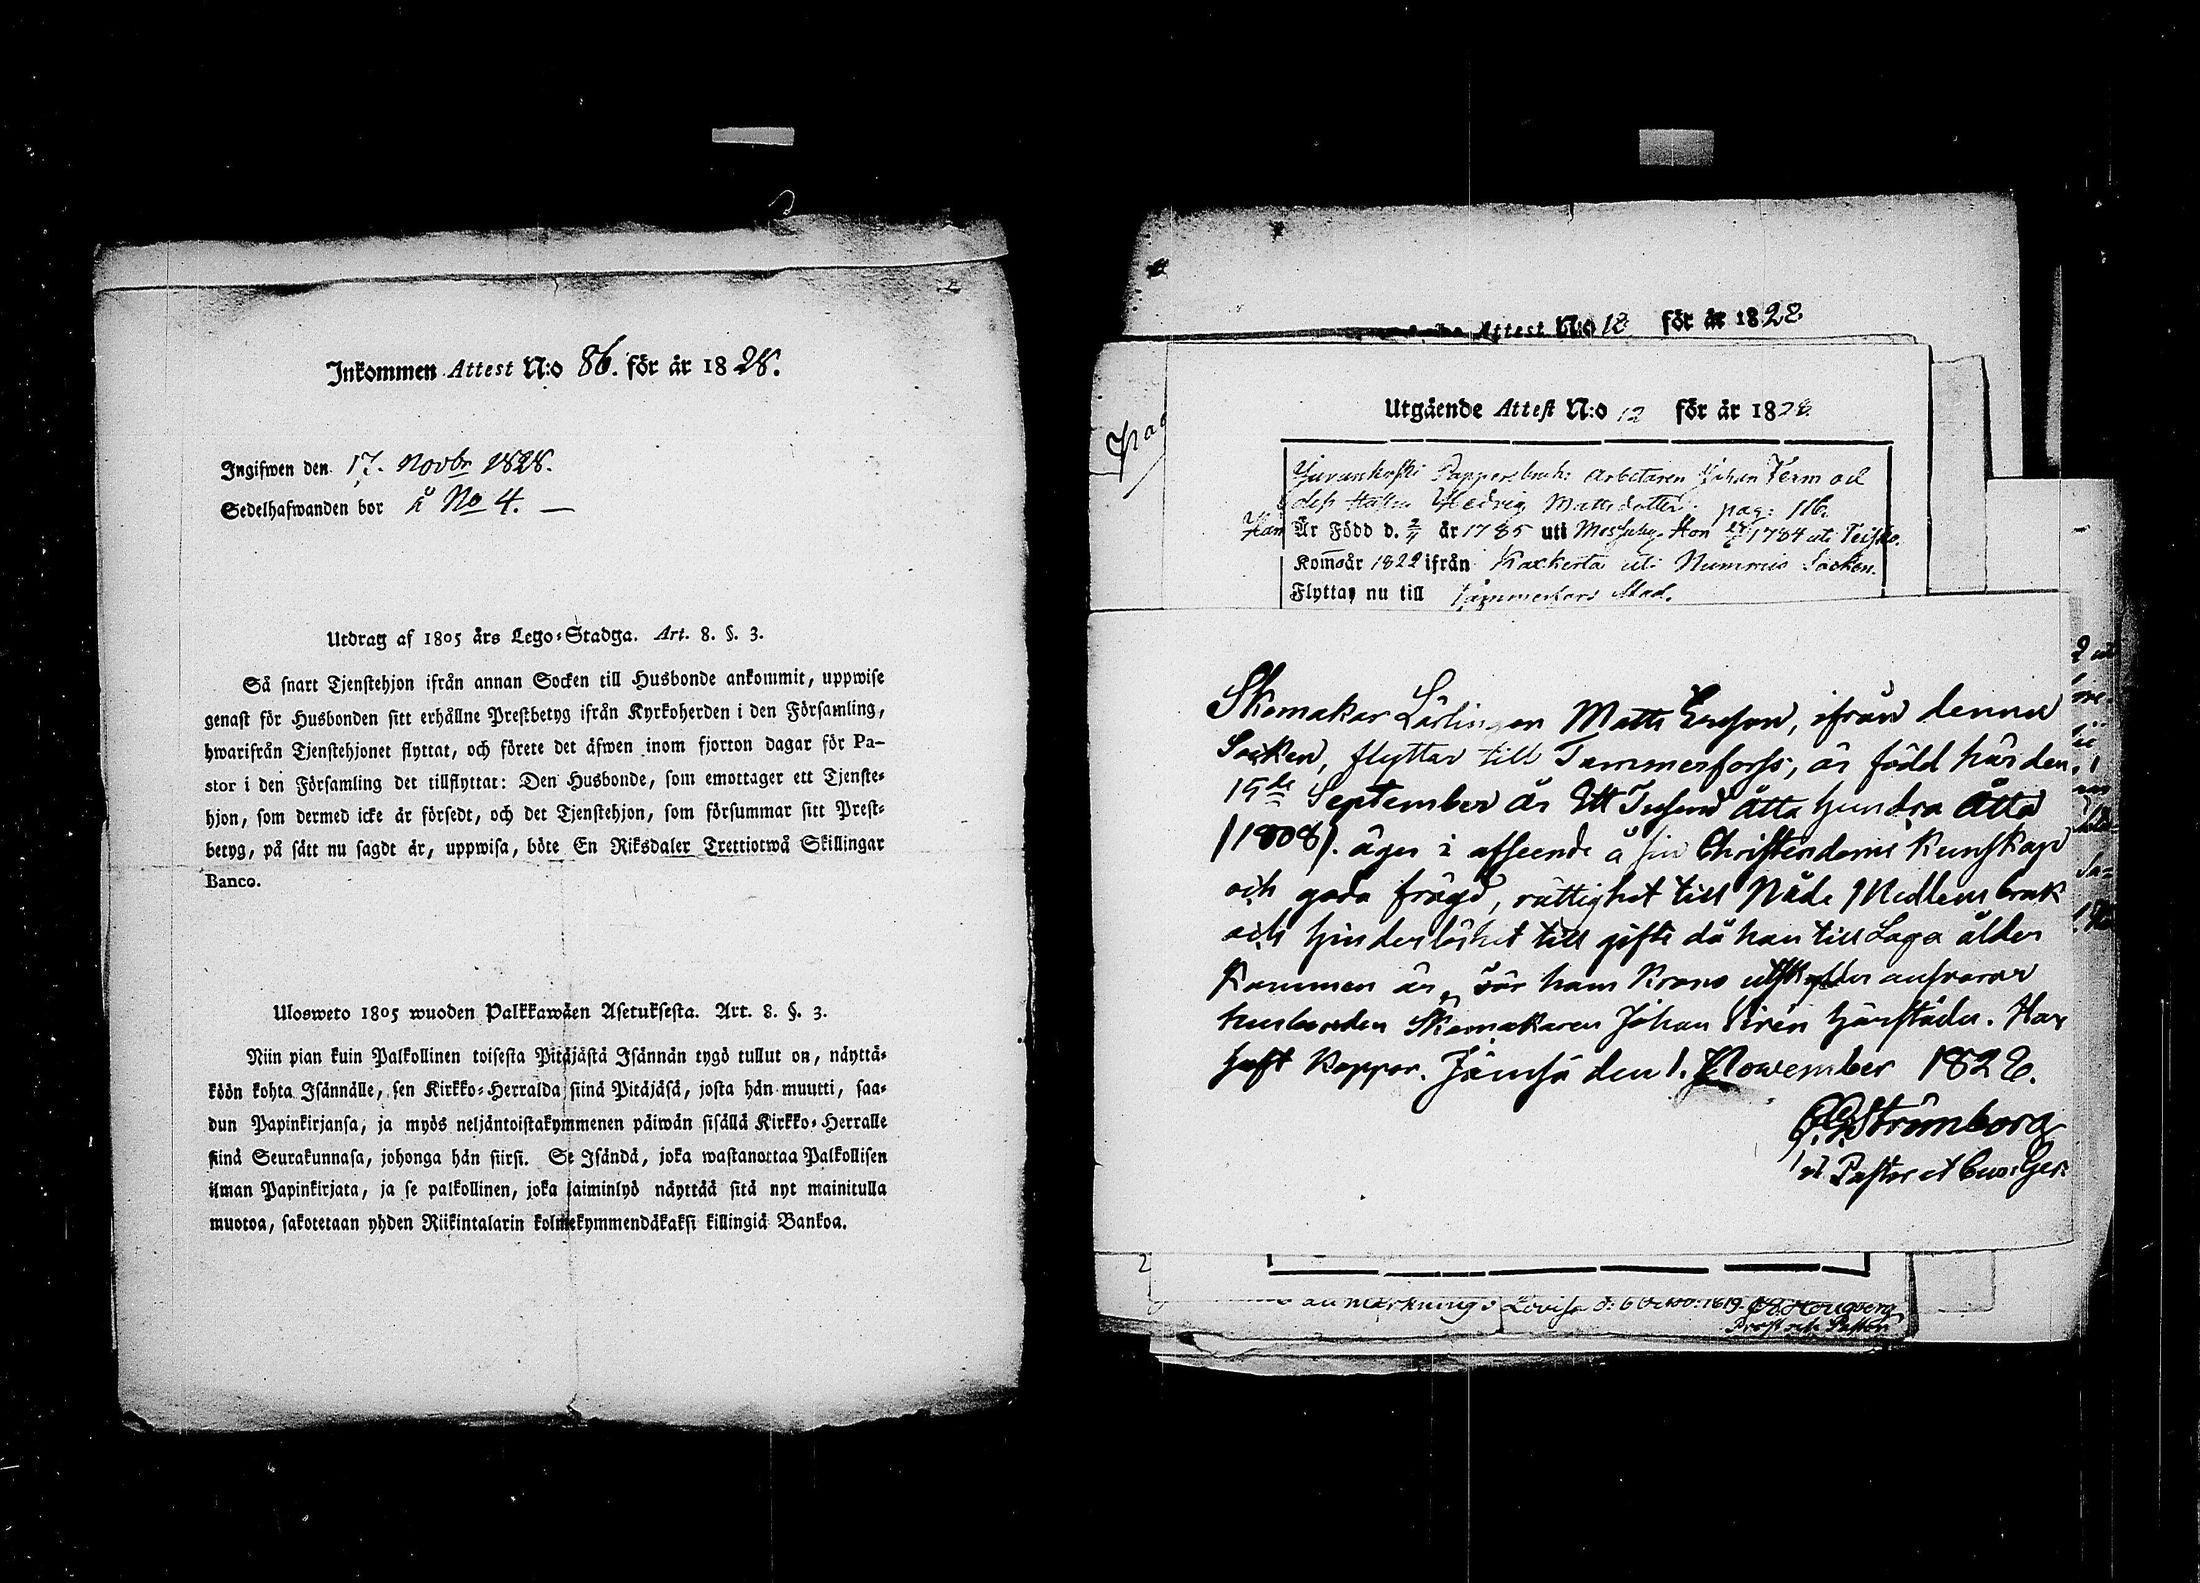 Inkommen Attest N:o 86. för år 1828.
Ingifwen den 17. Novbr 1828.
Sedelhafwanden bor å No 4. —
Utdrag af 1805 års Lego-Stadga. Art. 8. §. 3.
Så snart Tjenstehjon ifrån annan Socken till Husbonde ankommit, uppwise
genast för Husbonden sitt erhållne Prestbetyg ifrån Kyrkoherden i den Församling,
hwarifrån Tjenstehjonet flyttat, och förete det äfwen inom fjorton dagar för Pa-
stor i den Församling det tillflyttat: Den Husbonde, som emottager ett Tjenste-
hjon, som dermed icke är försedt, och det Tjenstehjon, som försummar sitt Prest-
betyg, på sätt nu sagdt är, uppwisa, böte En Riksdaler Trettiotwå Skillingar
Banco.
Ulosweto 1805 wuoden Palkkawäen Asetuksesta. Art. 8. §. 3.
Niin pian kuin Palkollinen toisesta Pitäjästä Isännän tygö tullut on, näyttä-
köön kohta Isännälle, sen Kirkko-Herralda siinä Pitäjäsä, josta hän muutti, saa-
dun Papinkirjansa, ja myös neljäntoistakymmenen päiwän sisällä Kirkko-Herralle
siinä Seurakunnasa, johonga hän siirsi. Se Isändä, joka wastanottaa Palkollisen
ilman Papinkirjata, ja se palkollinen, joka laiminlyö näyttää sitä nyt mainitulla
muotoa, sakotetaan yhden Riikintalarin kolmekymmendäkaksi killingiä Bankoa.
Attest N:o 18 för år 1828
Utgående Attest N:o 12 för år 1828
Juvankoski Pappersbruk: Arbetaren Johan Term och
dess Hustru Hedvig Mattsdotter. pag: 116.
Han Är Född d. 2/4 år 1785 uti Messuby. Hon 1784 uti Teisko.
Kom år 1822 ifrån Karkerla uti Nummis Socken.
Flyttar nu till Tammerfors Stad.
Skomakar Lärlingen Matts Ersson, ifrån denna
Socken, flyttar till Tammerforss, är född här den
19de September år Ett Tusend åtta hundra åtta
/1808/. äger i afseende å sin Christendoms kunskap
och goda frägd, rättighet till Nåde Medlens bruk
och hinderlöshet till gifte då han till Laga ålder
kommen är, för hans Krono utskylder ansvarar
husbonden Skomakaren Johan Sirén härstädes. Har
haft koppor. Jämsä den 1. November 1828.
Strömborg
Pastor et
anmärkning: Lovisa d. 6 1819.
Prost och Pastor